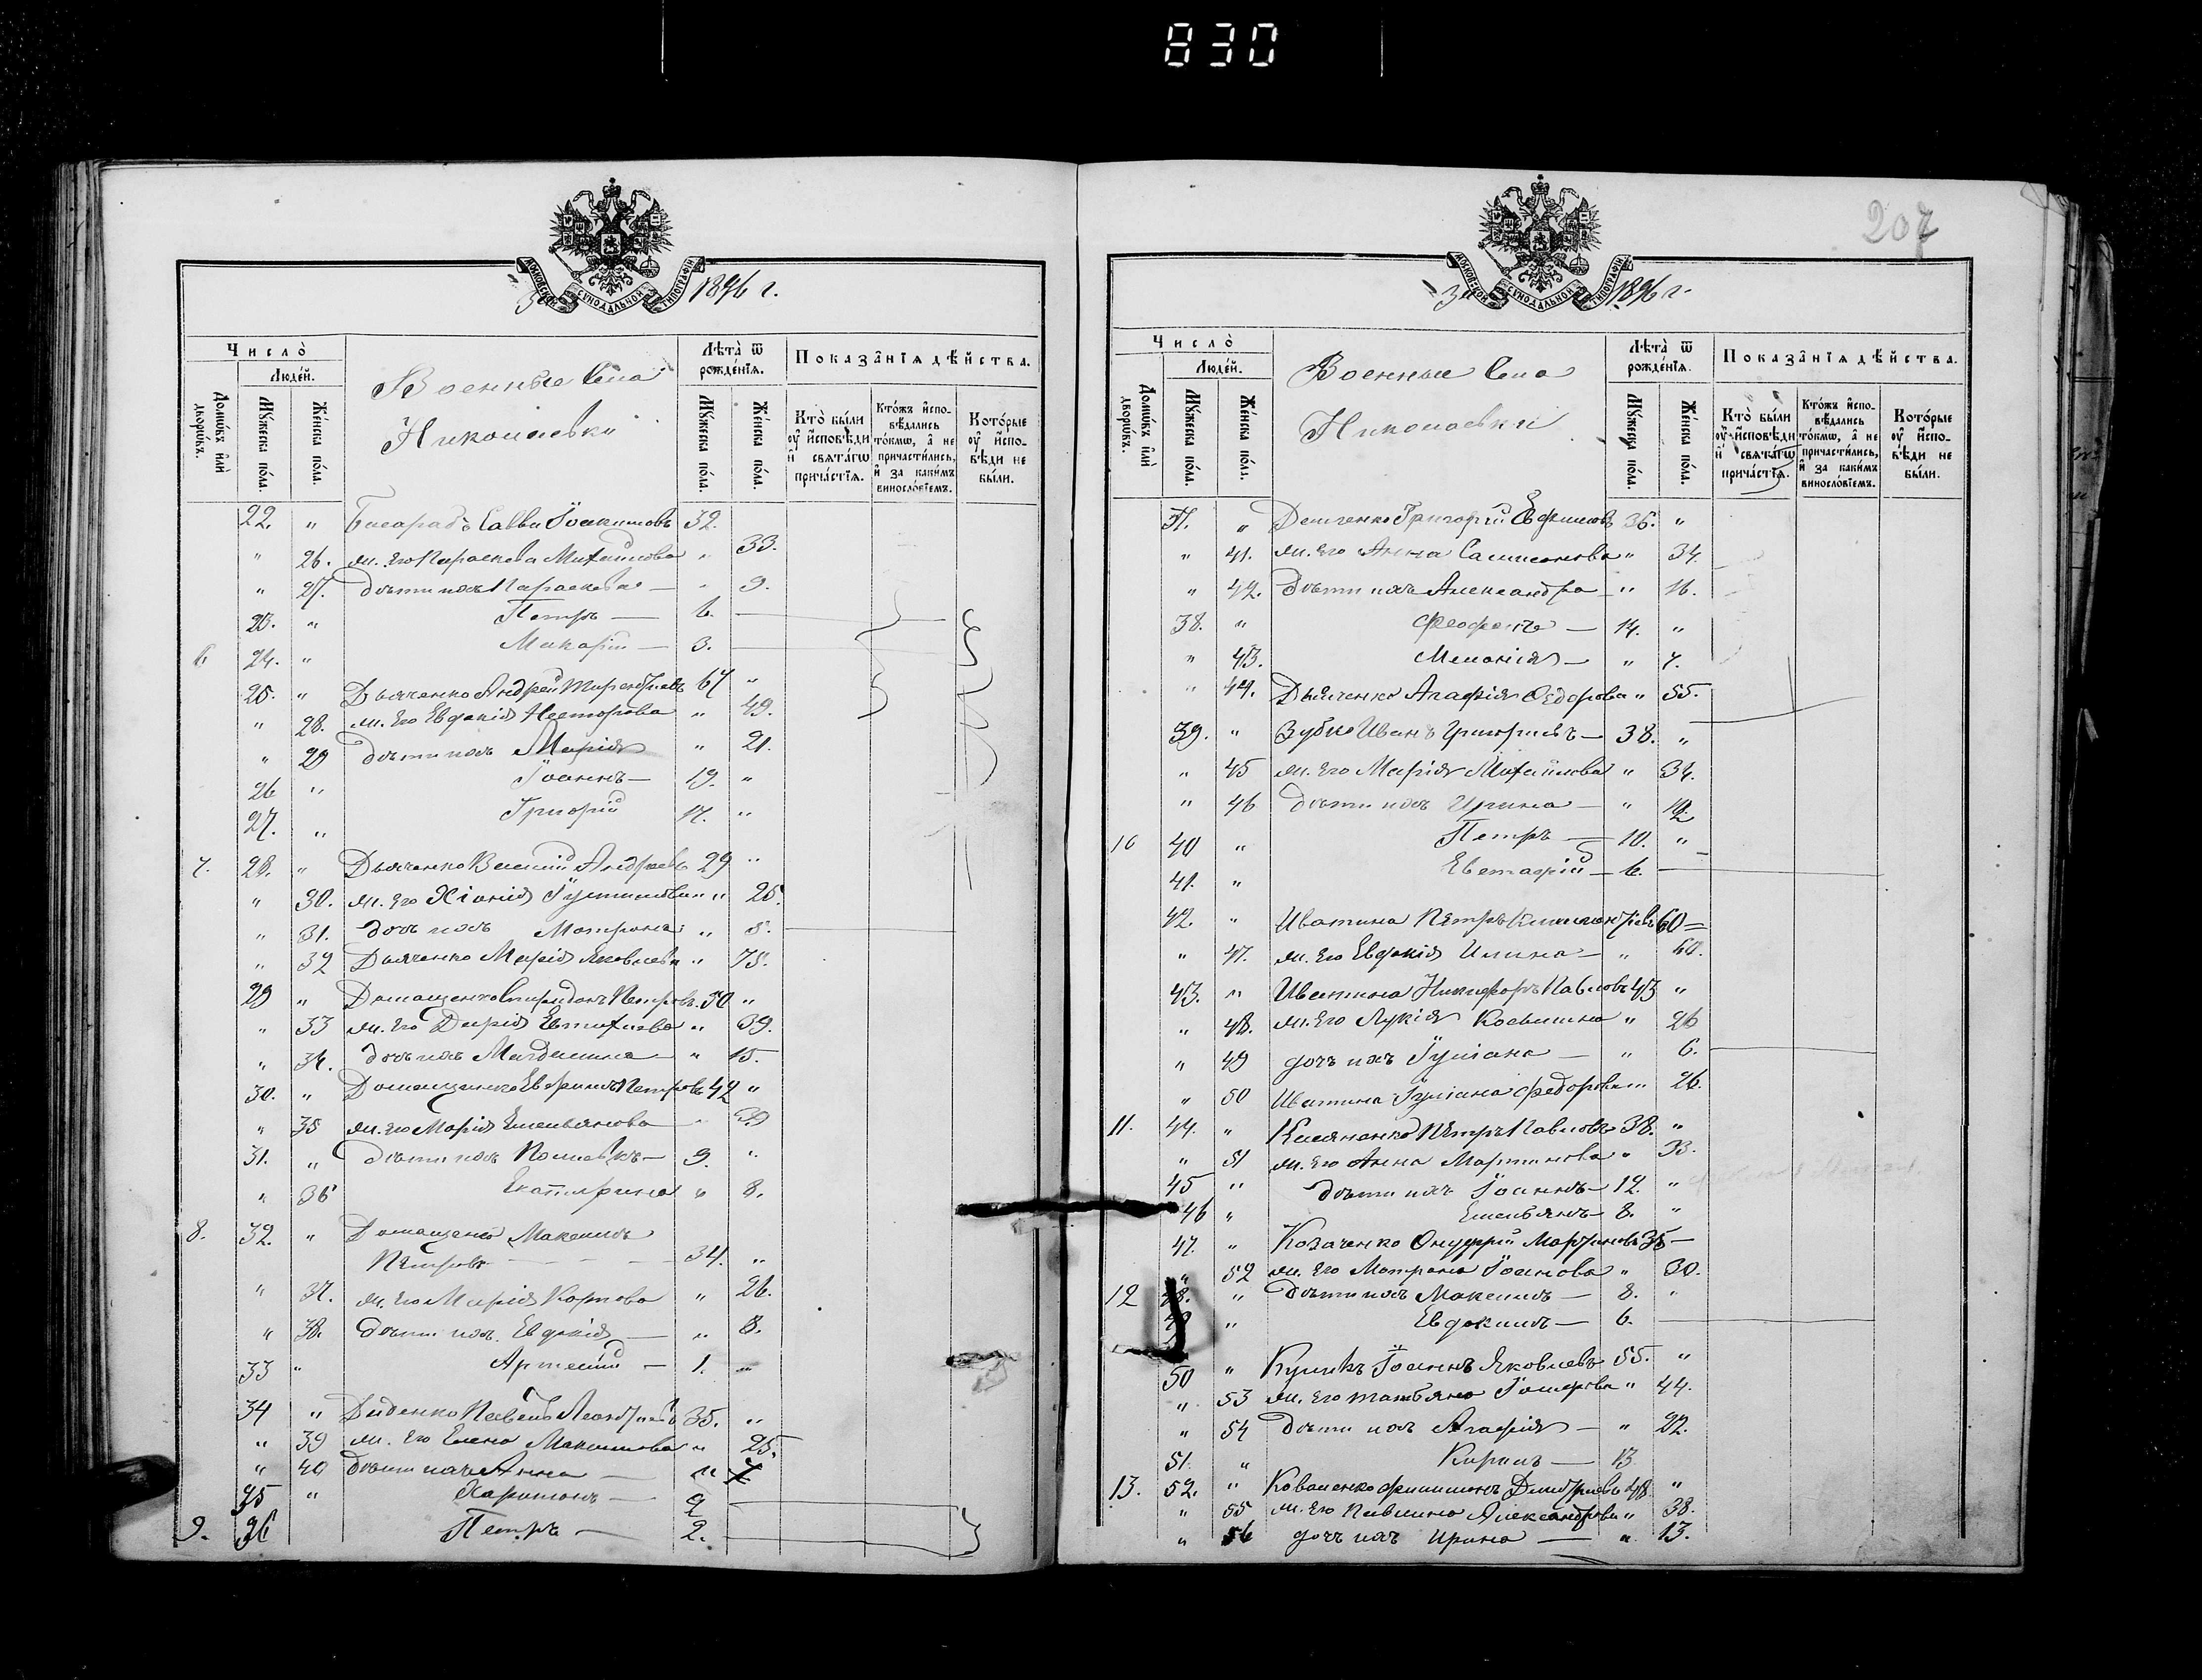 830
МОСКОВСКОЙ СѴНОДАЛЬНОЙ ТИПОГРАФІИ
За 1896 г.
Число̀
Людéй.
Домѡ́въ и҆лѝ дворѡ́въ.
Мꙋ́жеска по́ла.
Же́нска по́ла.
Военные Села
Николаевки
Лѣта̀ ѿ рожде́нїѧ.
Мꙋ́жеска по́ла.
Же́нска по́ла.
Показа̂нїѧ дѣ́йства.
Кто̀ бы́ли ᲂу҆ и҆́сповѣди и҆ свѧта́гѡ прича́стїѧ.
Кто́жъ и҆спо- вѣ́дались то́кмѡ, а҆ не причасти́лись, и҆ за каки́мъ винослѡ́вїемъ.
Кото́рые ᲂу҆ и҆́спо- вѣди не бы́ли.
22. " Басарабъ Савва Іоакимовъ 32.
" 26. ж. его Параскева Михайлова " 33.
" 27. дѣти ихъ Параскева — " 9.
23. " Петръ — 6.
6. 24. " Макарій — 3.
25. " Дьяченко Андрей 67 "
" 28. ж. его Евдокія Несторова " 49.
" 29 дѣти ихъ Марія " 21.
26 " Іоаннъ — 19. "
27. " Григорій 17. "
7. 28. " Дьяченко Василій Андреевъ 29 "
" 30. ж. его Хіонія Іустинова " 25.
" 31. дочь ихъ Матрона " 5.
" 32 Дьяченко Марія Яковлева " 75.
29 " Домащенко Спиридонъ Петровъ. 50 "
" 33 ж. его Дарія Евтихіева " 39.
" 34. дочь ихъ Магдалина — " 15.
30. " Домащенко Евфимъ Петровъ 42 "
" 35 ж. его Марія Емельянова " 39
31. " дѣти ихъ — 9. "
" 36 Екатерина " 8.
8. 32. " Домащенко Максимъ
Петровъ - - - - 34. "
" 37. ж. его Марія Карпова " 26.
" 38. дѣти ихъ Евдокія — " 8.
33 " Артемій — 1. "
34 " Диденко Павелъ 35. "
" 39 ж. его Елена Максимова " 25.
" 40 дѣти ихъ Анна — " 7
35 " Харитонъ — 2
9. 36 Петръ — 2.
207
МОСКОВСКОЙ СѴНОДАЛЬНОЙ ТИПОГРАФІИ
За 1896 г.
Число̀
Людéй.
Домѡ́въ и҆лѝ дворѡ́въ.
Мꙋ́жеска по́ла.
Же́нска по́ла.
Военные Села
Николаевки
Лѣта̀ ѿ рожде́нїѧ.
Мꙋ́жеска по́ла.
Же́нска по́ла.
Показа̂нїѧ дѣ́йства.
Кто̀ бы́ли ᲂу҆ и҆́сповѣди и҆ свѧта́гѡ прича́стїѧ.
Кто́жъ и҆спо- вѣ́дались то́кмѡ, а҆ не причасти́лись, и҆ за каки́мъ винослѡ́вїемъ.
Кото́рые ᲂу҆ и҆́спо- вѣди не бы́ли.
37. " Григорій Евфимовъ 36. "
" 41. ж. его Анна Сампсонова " 34.
" 42. дѣти ихъ Александра — " 16.
38. " — 14. "
" 43. Меланія — " 7.
" 44. Дьяченко Агафія Ѳедорова " 55.
39. " Зубко Иванъ Григорьевъ — 38. "
" 45 ж. его Марія Михайлова " 34.
" 46 дѣти ихъ Ирина — " 12.
10 40 " Петръ — 10. "
41. " Евстафій — 6. —
42. " Иватина Петръ 60 =
" 47. ж. его Евдокія Ильина — " 60.
43. " Иватина Никифоръ Павловъ 43 "
" 48. ж. его Лукія Косьмина " 26
" 49 дочь ихъ Іуліана — " 6.
" 50 Иватина Іуліана Федорова " 26.
11. 44. " Касяненко Петръ Павловъ 38. "
" 51 ж. его Анна Мартинова " 33.
45 " дѣти ихъ Іоаннъ — 12. "
46 " Емельянъ — 8. "
47. " Козаченко Онуфрій Мартиновъ 35 —
" 52 ж. его Матрона Іоанова " 30.
12 48. " дѣти ихъ Максимъ — 8. "
49 " Евдокимъ — 6.
50 " Куликъ Іоаннъ Яковлевъ 55. "
" 53 ж. его Татьяна Іосифова " 44.
" 54 дѣти ихъ Агафія — " 22.
51. " Кирилъ — 13
13. 52. " Коваленко Филимонъ Дмитріевъ 48 "
" 55 ж. его Павлина Александрова " 38.
" 56 дочь ихъ Ирина — " 13.